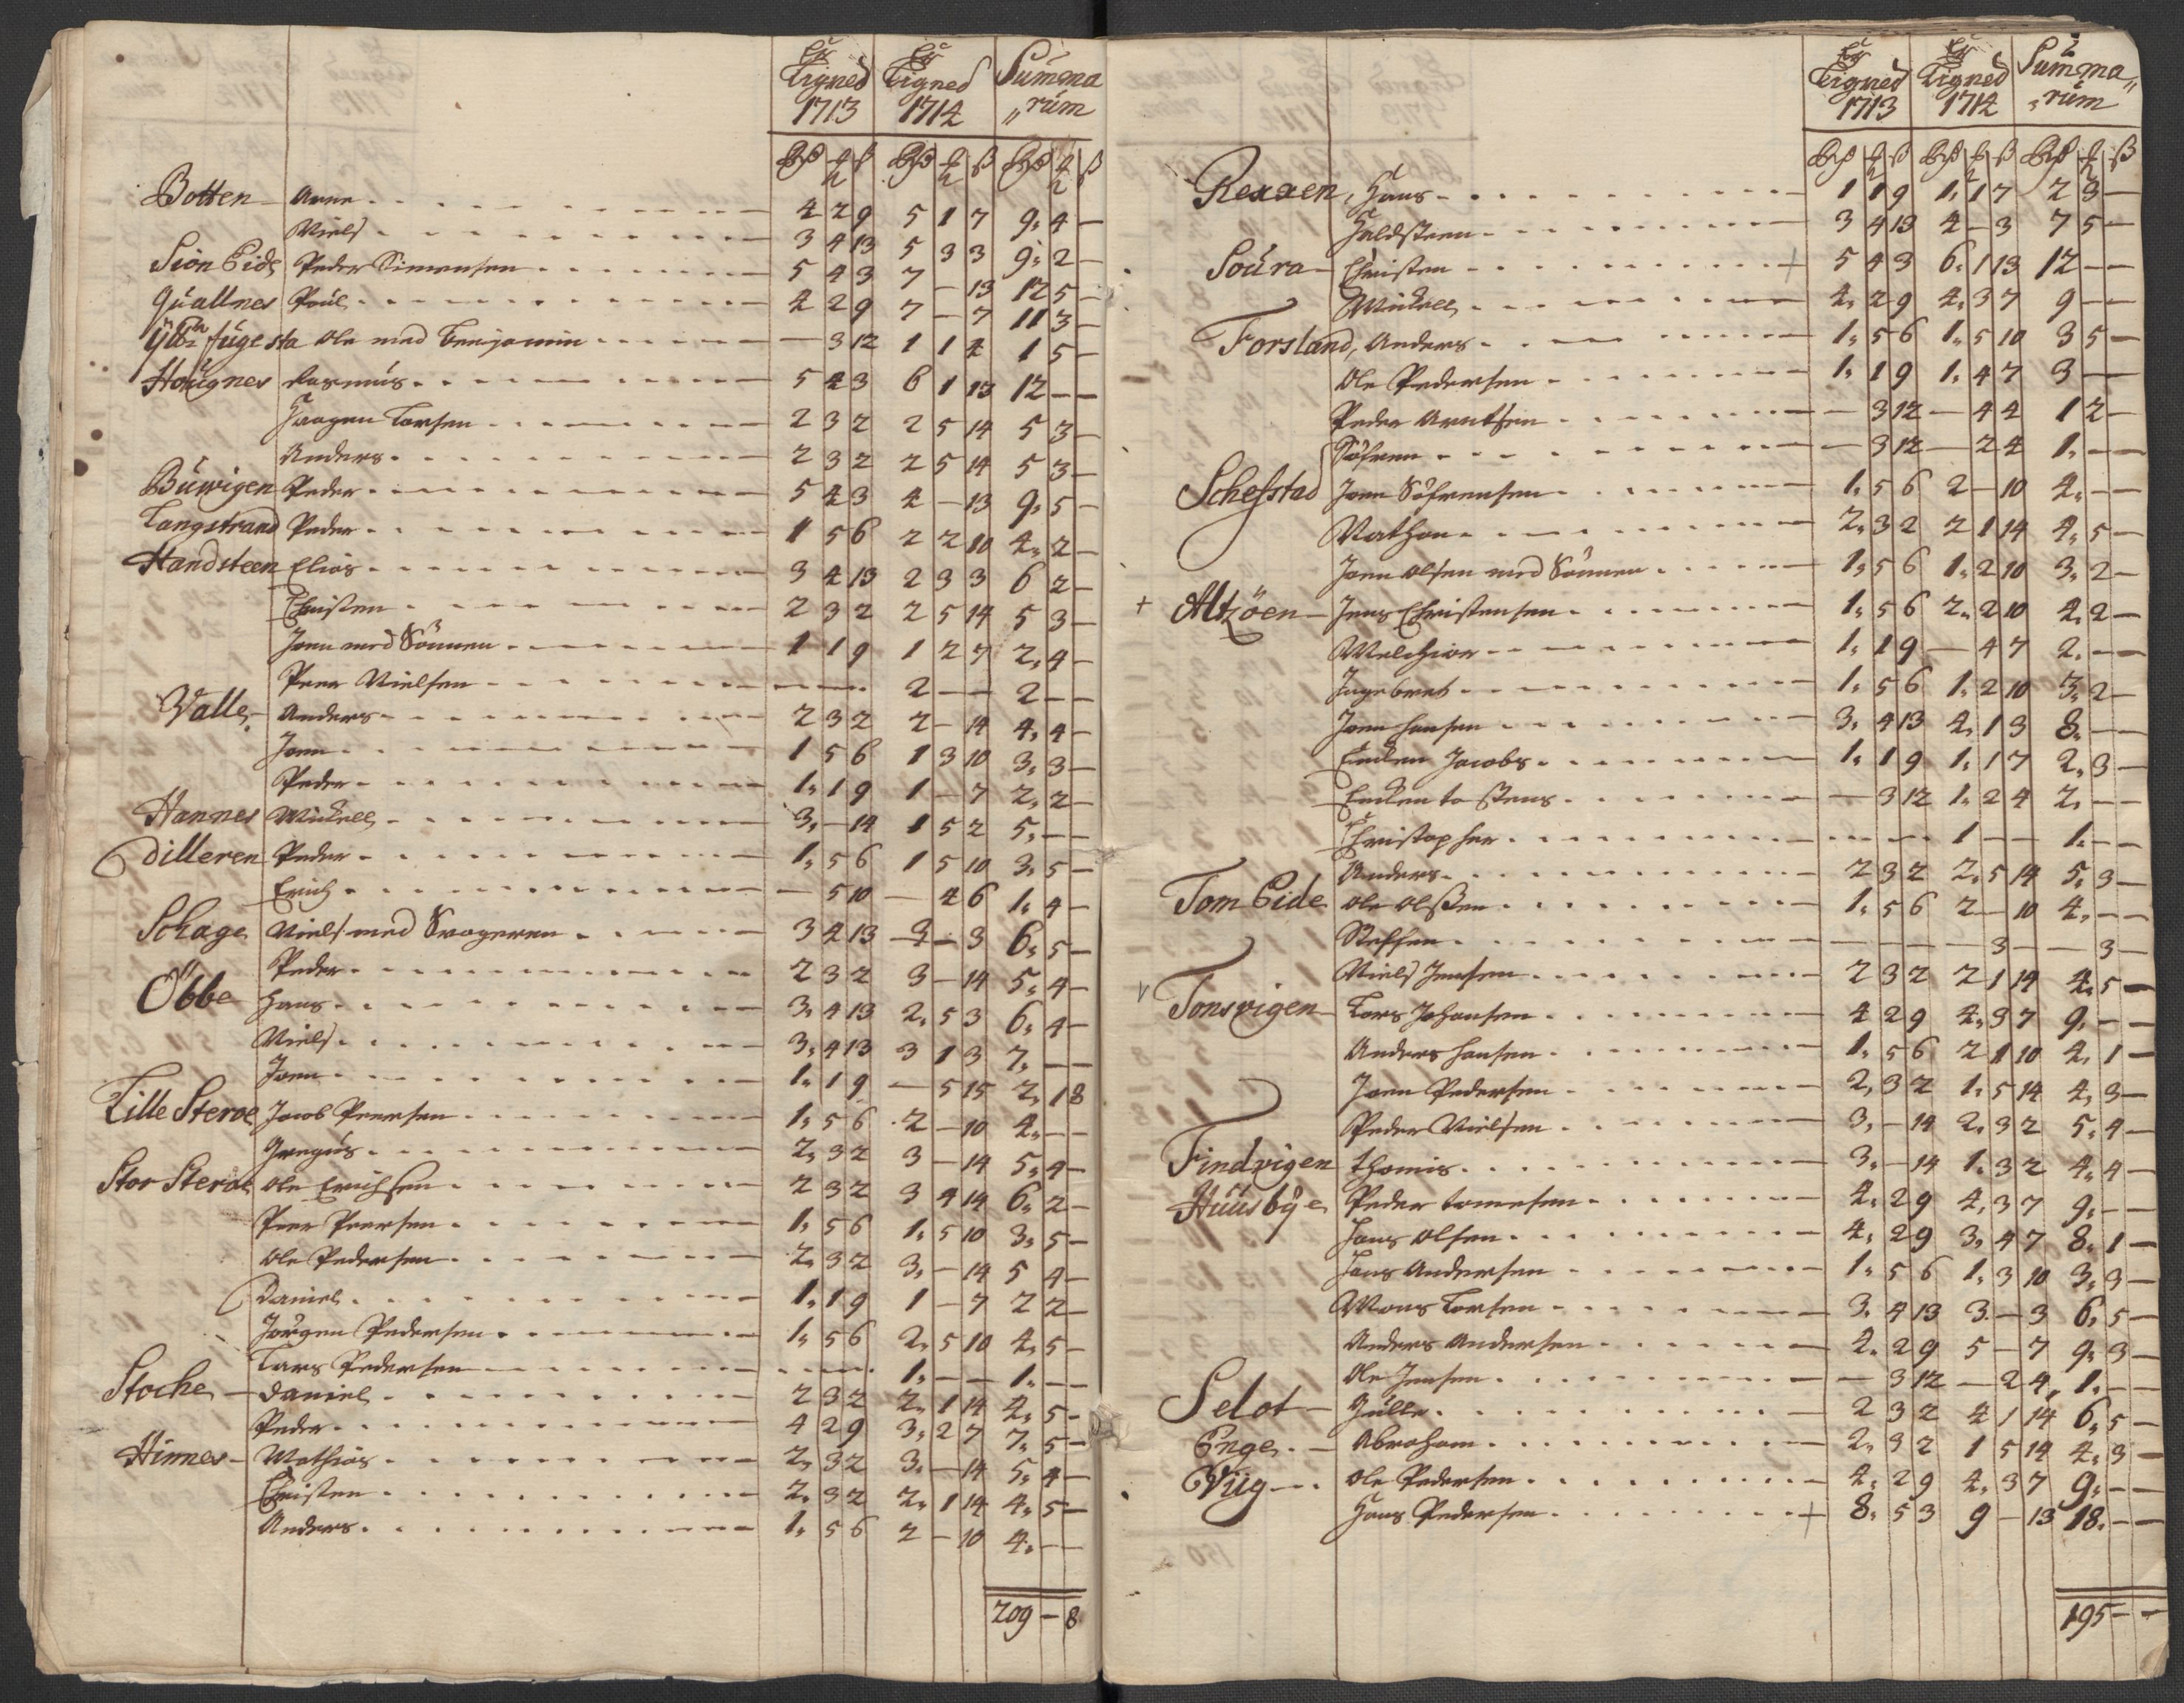 Ligned 1713 Ligned 1714 Summa„rum
Botten Arne 4 2 9 5 1 7 9 4 —
Niels 3 4 13 5 3 3 9 2 —
Sion Eide Peder Simensen 5 4 3 7 — 13 12 5 —
Quallnes Poul 4 2 9 7 — 7 11 3 —
Ole med Benjamin — 3 12 1 1 4 1 5 —
Hougnes Rasmus 5 4 3 6 1 13 12 — —
Haagen Larsen 2 3 2 2 5 14 5 3 —
Anders 2 3 2 2 5 14 5 3 —
Buwigen Peder 5 4 3 4 — 13 9 5 —
Langstrand Peder 1 5 6 2 2 10 4 2 —
Handsteen Elias 3 4 13 2 3 3 6 2 —
Christen 2 3 2 2 5 14 5 3 —
Joen med Sönnen 1 1 9 1 2 7 2 4 —
Peer Nielsen — — — 2 — — 2 — —
Valle Anders 2 3 2 2 — 14 4 4 —
Joen 1 5 6 1 3 10 3 3 —
Peder 1 1 9 1 — 7 2 2 —
Hannes Mickell 3 — 14 1 5 2 5 — —
Dilleren Peder 1 5 6 1 5 10 3 5 —
Erich — 5 10 — 4 6 1 4 —
Schage Niels med Svogeren 3 4 13 3 — 3 6 5 —
Peder 2 3 2 3 — 14 5 4 —
Öbbe Hans 3 4 13 2 5 3 6 4 —
Niels 3 4 13 3 1 3 7 — —
Joen 1 1 9 — 5 15 2 1 8
Lille Steroe Jacob Peersen 1 5 6 2 — 10 4 — —
Gregus 2 3 2 3 — 14 5 4 —
Stor Steroe Ole Erichsen 2 3 2 3 4 14 6 2 —
Peer Peersen 1 5 6 1 5 10 3 5 —
Ole Pedersen 2 3 2 3 — 14 5 4 —
Daniel 1 1 9 1 — 7 2 2 —
Jörgen Pedersen 1 5 6 2 5 10 4 5 —
Lars Pedersen — — — 1 — — 1 — —
Stoche Daniel 2 3 2 2 1 14 4 5 —
Peder 4 2 9 3 2 7 7 5 —
Hinnes Mathias 2 3 2 3 — 14 5 4 —
Christen 2 3 2 2 1 14 4 5 —
Anders 1 5 6 2 — 10 4 — —
209 — 8
Ligned 1713 Ligned 1714 Summa„rum
Rexxen, Hans 1 1 9 1 1 7 2 3 —
Haldsteen 3 4 13 4 — 3 7 5 —
Soura Christen + 5 4 3 6 1 13 12 — —
Mickell 4 2 9 4 3 7 9 — —
Forsland, Anders 1 5 6 1 5 10 3 5 —
Ole Pedersen 1 1 9 1 4 7 3 — —
Peder Arntsen — 3 12 — 4 4 1 2 —
Söfren — 3 12 — 2 4 1 — —
Schefstad Joen Söfrensen 1 5 6 2 — 10 4 — —
Mathias 2 3 2 2 1 14 4 5 —
Joen Olsen med Sönnen 1 5 6 1 2 10 3 2 —
+ Altzöen Jens Christensen 1 5 6 2 2 10 4 2 —
Melchior 1 1 9 — 4 7 2 — —
Ingebret 1 5 6 1 2 10 3 2 —
Joen Hansen 3 4 13 4 1 3 8 — —
Encken Jacobs 1 1 9 1 1 7 2 3 —
— 3 12 1 2 4 2 — —
Christopher — — — 1 — — 1 — —
Anders 2 3 2 2 5 14 5 3 —
Tom Eide Ole Olssen 1 5 6 2 — 10 4 — —
Steffen — — — — 3 — — 3 —
Niels Jensen 2 3 2 2 1 14 4 5 —
Tonsvigen Lars Johansen 4 2 9 4 3 7 9 — —
Anders Hansen 1 5 6 2 1 10 4 1 —
Joen Pedersen 2 3 2 1 5 14 4 3 —
Peder Nielsen 3 — 14 2 3 2 5 4 —
Findvigen Thomis 3 — 14 1 3 2 4 4 —
Huusbÿe Peder Tomesen 4 2 9 4 3 7 9 — —
Hans Olsen 4 2 9 3 4 7 8 1 —
Hans Andersen 1 5 6 1 3 10 3 3 —
Mons Larsen 3 4 13 3 — 3 6 5 —
Anders Andersen 4 2 9 5 — 7 9 3 —
Ole Jensen — 3 12 — 2 4 1 — —
Selot Gulle 2 3 2 4 1 14 6 5 —
Enge Abraham 2 3 2 1 5 14 4 3 —
Viig Ole Pedersen 4 2 9 4 3 7 9 — —
Hans Pedersen + 8 5 3 9 — 13 18 — —
195 — —